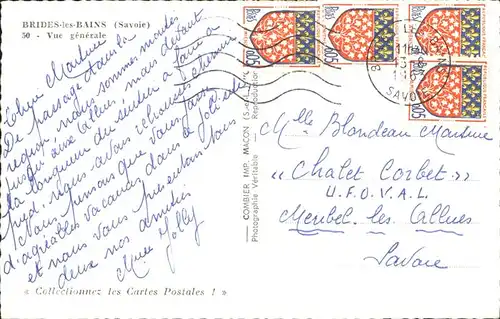 BRIDES-les-BAINS (Savoie)
50 - Vue générale
Chère Martine
De passage dans la
région, nous sommes montés
jusqu'aux Allues, mais devant
la longueur du sentier à faire à
pied, nous avons rebroussé chemin
Nous pensons que vous passez
d'agréables vacances dans ce joli
et nous vous présentons tous
deux nos amitiés
Mme Jolly
« Collectionnez les Cartes Postales ! »
COMBIER IMP. MACON
Photographie Véritable - Reproduction
SAVOIE
0,05
0,05
0,05
0,05
Mlle Blondeau Martine
« Chalet Corbet »
U.F.O.V.A.L.
Meribel les Allues
Savoie